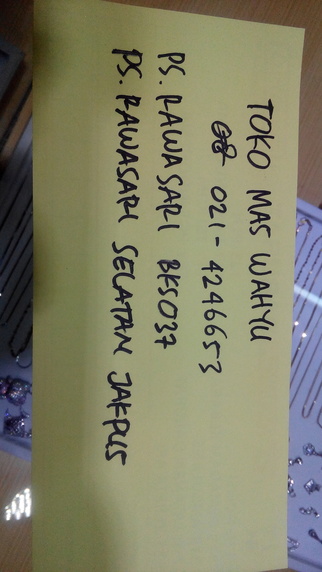 TOKO MAS WAHYU
021-4246653
PS. RAWASARI BKS037
PS. RAWASARI SELATAN JAKPUS